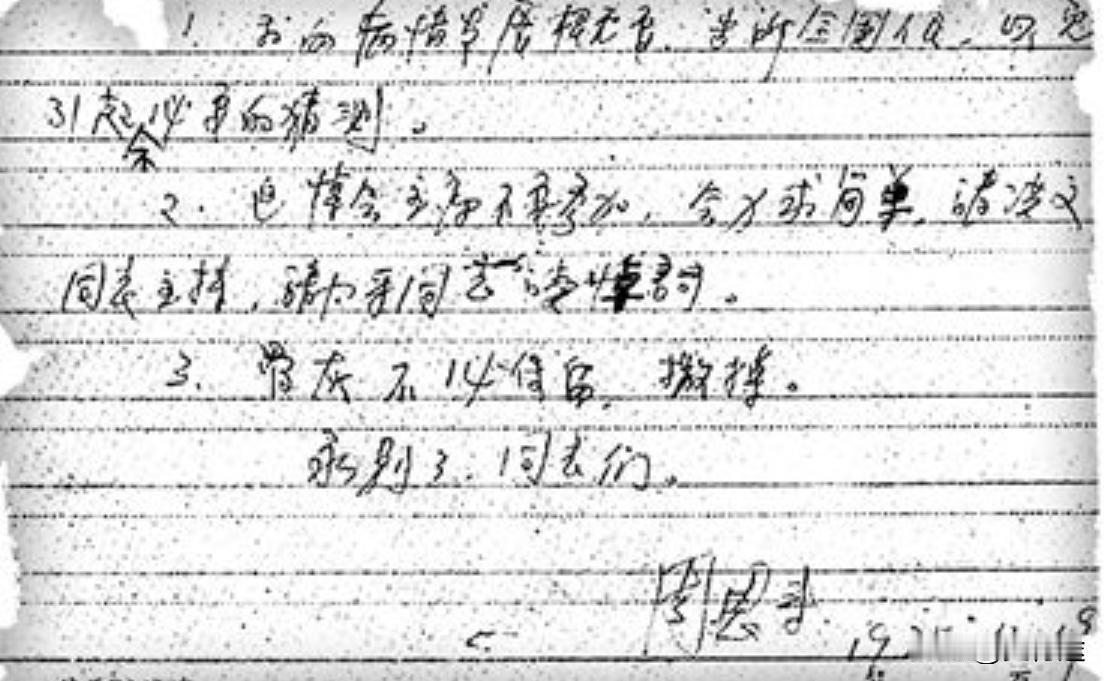 1. 我的病情发展报告, 告诉全国人民, 以免
引起不必要的猜测。
2. 追悼会主席不要参加, 会力求简单, 请洪文
同志主持, 请小平同志读悼词。
3. 骨灰不必保留, 撒掉。
永别了, 同志们。
周恩来
19